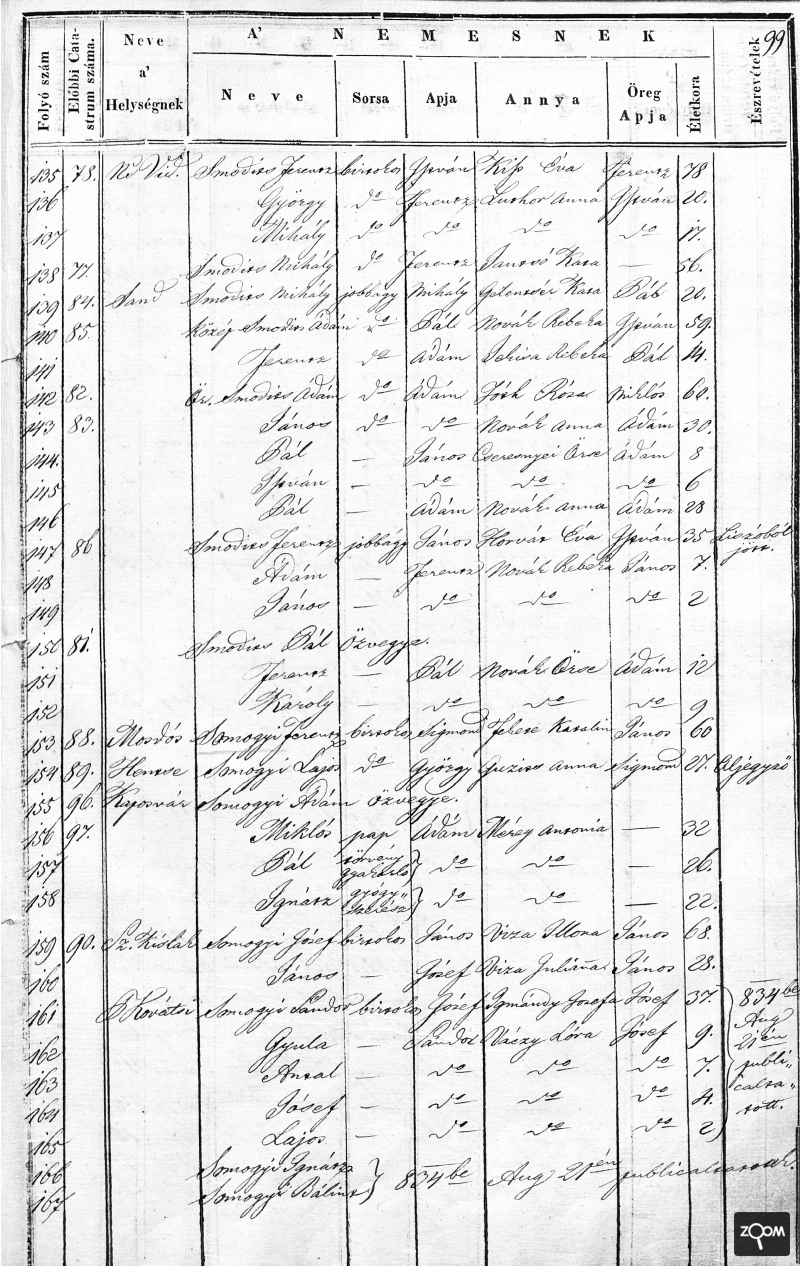 99
A' NEMESNEK
Folyó szám | Előbbi Catastrum száma. | Neve a' Helységnek | Neve | Sorsa | Apja | Annya | Öreg Apja | Életkora | Észrevételek
135 78. Smodics Ferencz birtokos István Kiss Éva Ferencz 78
136 György do Ferencz Luthor Anna István 20.
137 Mihály do do do do 17.
138 77. Smodics Mihály do Ferencz Kata — 56.
139 84. Sand Smodics Mihály jobbágy Mihály Gelencsér Kata Pál 20.
140 85. Közép Smodics Ádám do Pál Novák Rebeka István 59.
141 Ferencz do Ádám Rebeka Pál 14.
142 82. Ör. Smodics Ádám do Ádám Tóth Rósa Miklós 60.
143 83. János do do Novák Anna Ádám 30.
144. Pál — János Cseresnyei Örse Ádám 8
145 István — do do do 6
146 Pál — Ádám Novák Anna Ádám 28
147 86 Smodics Ferencz jobbágy János Horvát Éva István 35 Liszóból jött.
148 Ádám — Ferencz Novák Rebeka János 7.
149 János — do do do 2
150 81. Smodics Pál özvegye.
151 Ferencz — Pál Novák Örse Ádám 12
152 Károly — do do do 9
153 88. Mosdós Somogyi Ferencz birtokos Sigmond Fekete Katalin János 60
154 89. Hencse Somogyi Lajos do György Guzics Anna Sigmond 27. Aljegyző
155 96. Kaposvár Somogyi Ádám özvegye.
156 97. Miklós pap Ádám Mérey Antonia — 32
157 Pál törvény gyakorló do do — 26.
158 Ignátz gyógyszerész do do — 22.
159 90. Sz. Kislak Somogyi Jósef birtokos János Viza Illona János 68.
160 János — Jósef Viza Julianna János 28.
161 F. Kovátsi Somogyi Sándor birtokos Jósef Igmándy Josefa Jósef 37. 834be Aug 21én publicaltatott.
162 Gyula — Sándor Váczy Lóra Jósef 9.
163 Antal — do do do 7.
164 Jósef — do do do 4.
165 Lajos — do do do 2
166 Somogyi Ignátz
167 Somogyi Bálint } 834be Aug 21én publicaltattak.
ZOOM